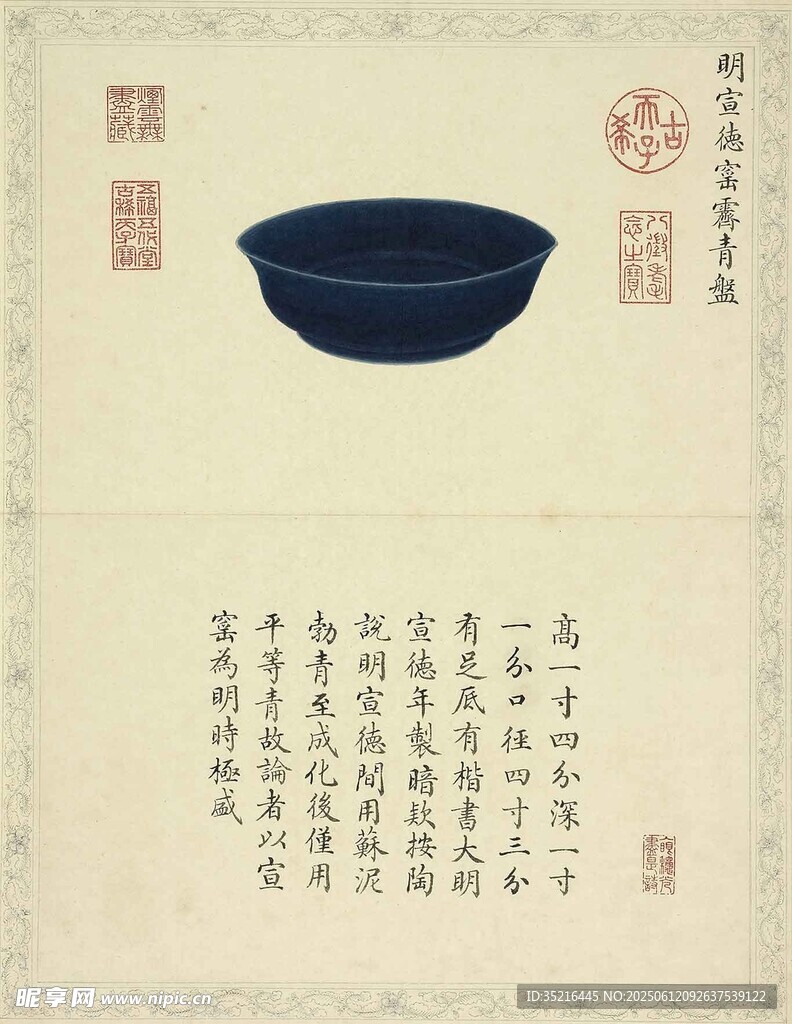 明宣德窰霽青盤
古希天子
八徵耄念之寶
煙雲無盡藏
五福五代堂古稀天子寶
高一寸四分深一寸
一分口徑四寸三分
有足底有楷書大明
宣德年製暗欵按陶
說明宣德間用蘇泥
勃青至成化後僅用
平等青故論者以宣
窰為明時極盛
昵享网 www.nipic.cn
ID:35216445 NO:20250612092637539122